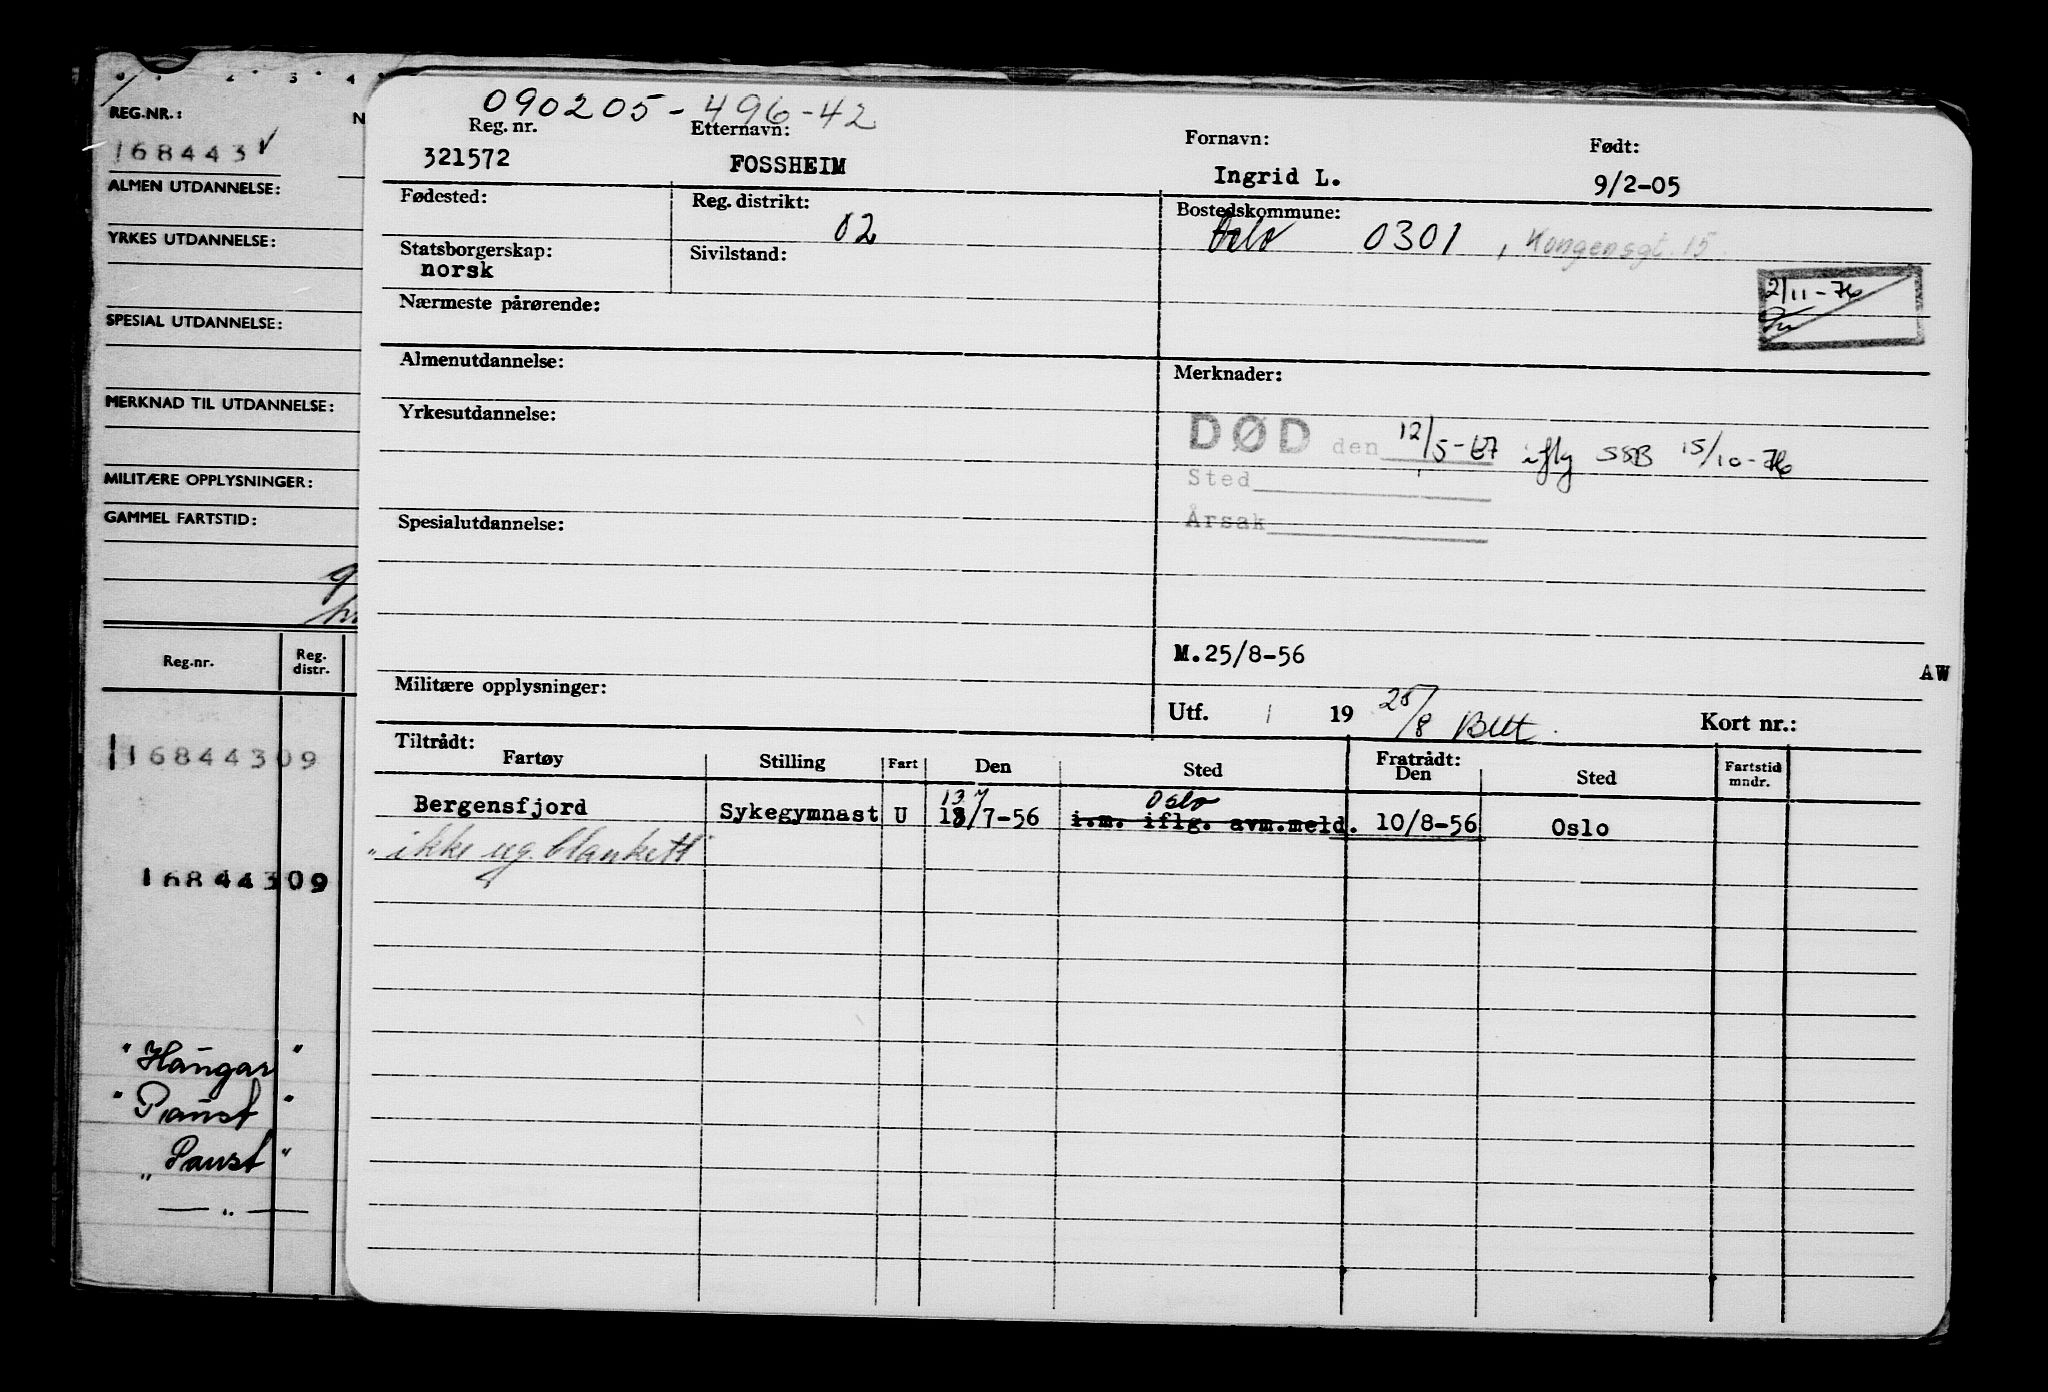 2 · 3 · 4
REG.NR.: N
168443 ✓
ALMEN UTDANNELSE:
YRKES UTDANNELSE:
SPESIAL UTDANNELSE:
MERKNAD TIL UTDANNELSE:
MILITÆRE OPPLYSNINGER:
GAMMEL FARTSTID:
Reg.nr. Reg. distr.
16844309
16844309
"Hangar"
"Paust"
"Paust"
— " —
090205-496-42
Reg. nr. Etternavn: Fornavn: Født:
321572 FOSSHEIM Ingrid L. 9/2-05
Fødested: Reg. distrikt: 02 Bostedskommune:
Oslo 0301, Kongensgt. 15.
Statsborgerskap: Sivilstand:
norsk
2/11-76
Nærmeste pårørende:
Almenutdannelse: Merknader:
Yrkesutdannelse:
DØD den 12/5-67 iflg SSB 15/10-76
Sted
Årsak
Spesialutdannelse:
M.25/8-56 AW
Militære opplysninger:
Utf. / 19 25/8 Kort nr.:
Tiltrådt: Fratrådt:
Fartøy Stilling Fart Den Sted Den Sted Fartstid mndr.
13/7 Oslo
Bergensfjord Sykegymnast U 13/7-56 i.m. iflg. avm.meld. 10/8-56 Oslo
"ikke ug. blankett"